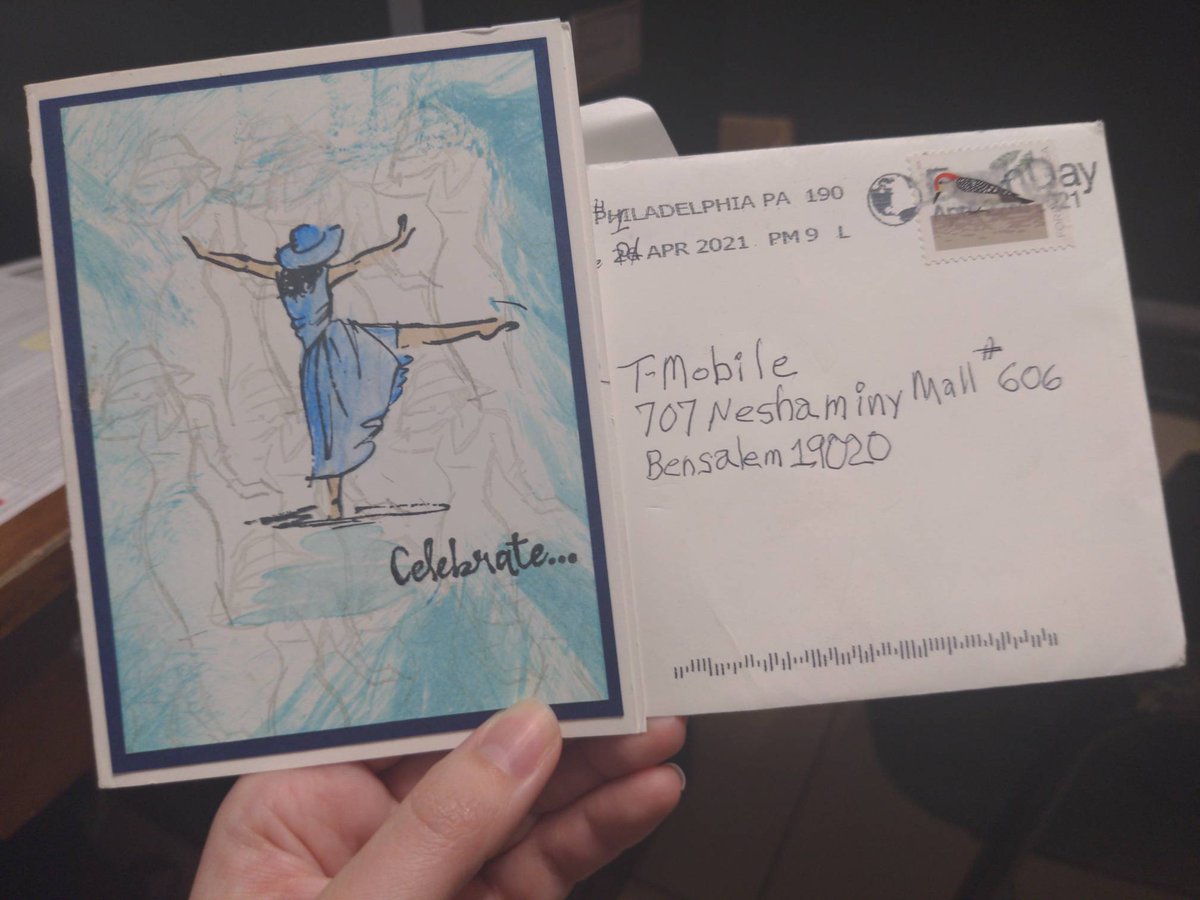 Celebrate...
PHILADELPHIA PA 190
APR 2021 PM 9 L
Day
T-Mobile
707 Neshaminy Mall #606
Bensalem 19020